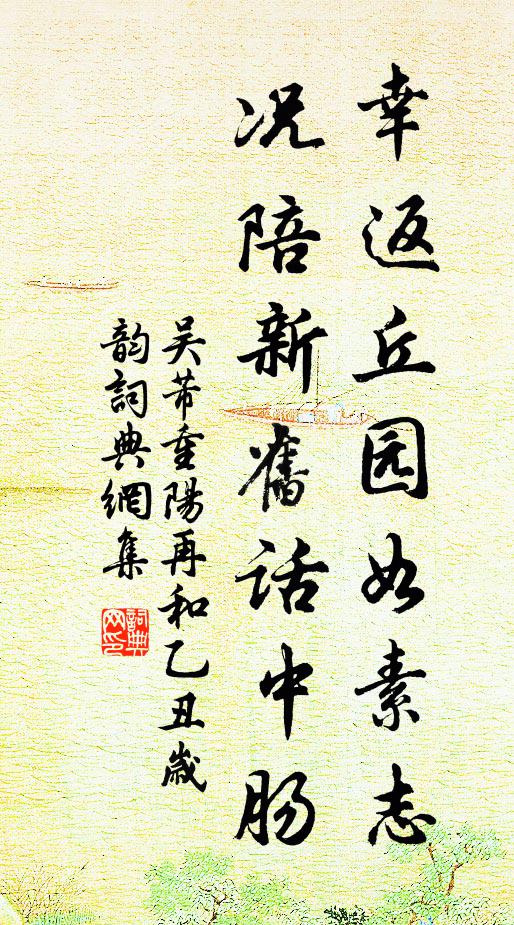 幸返丘园如素志
况陪新舊话中肠
吴芾重陽再和乙丑歲
韵詞典網集
詞典网印